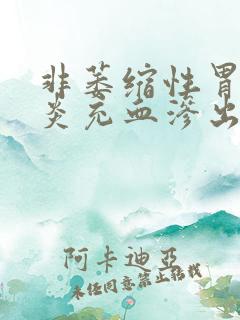 非萎缩性胃
炎充血渗出
阿卡迪亚
未经同意禁止转载